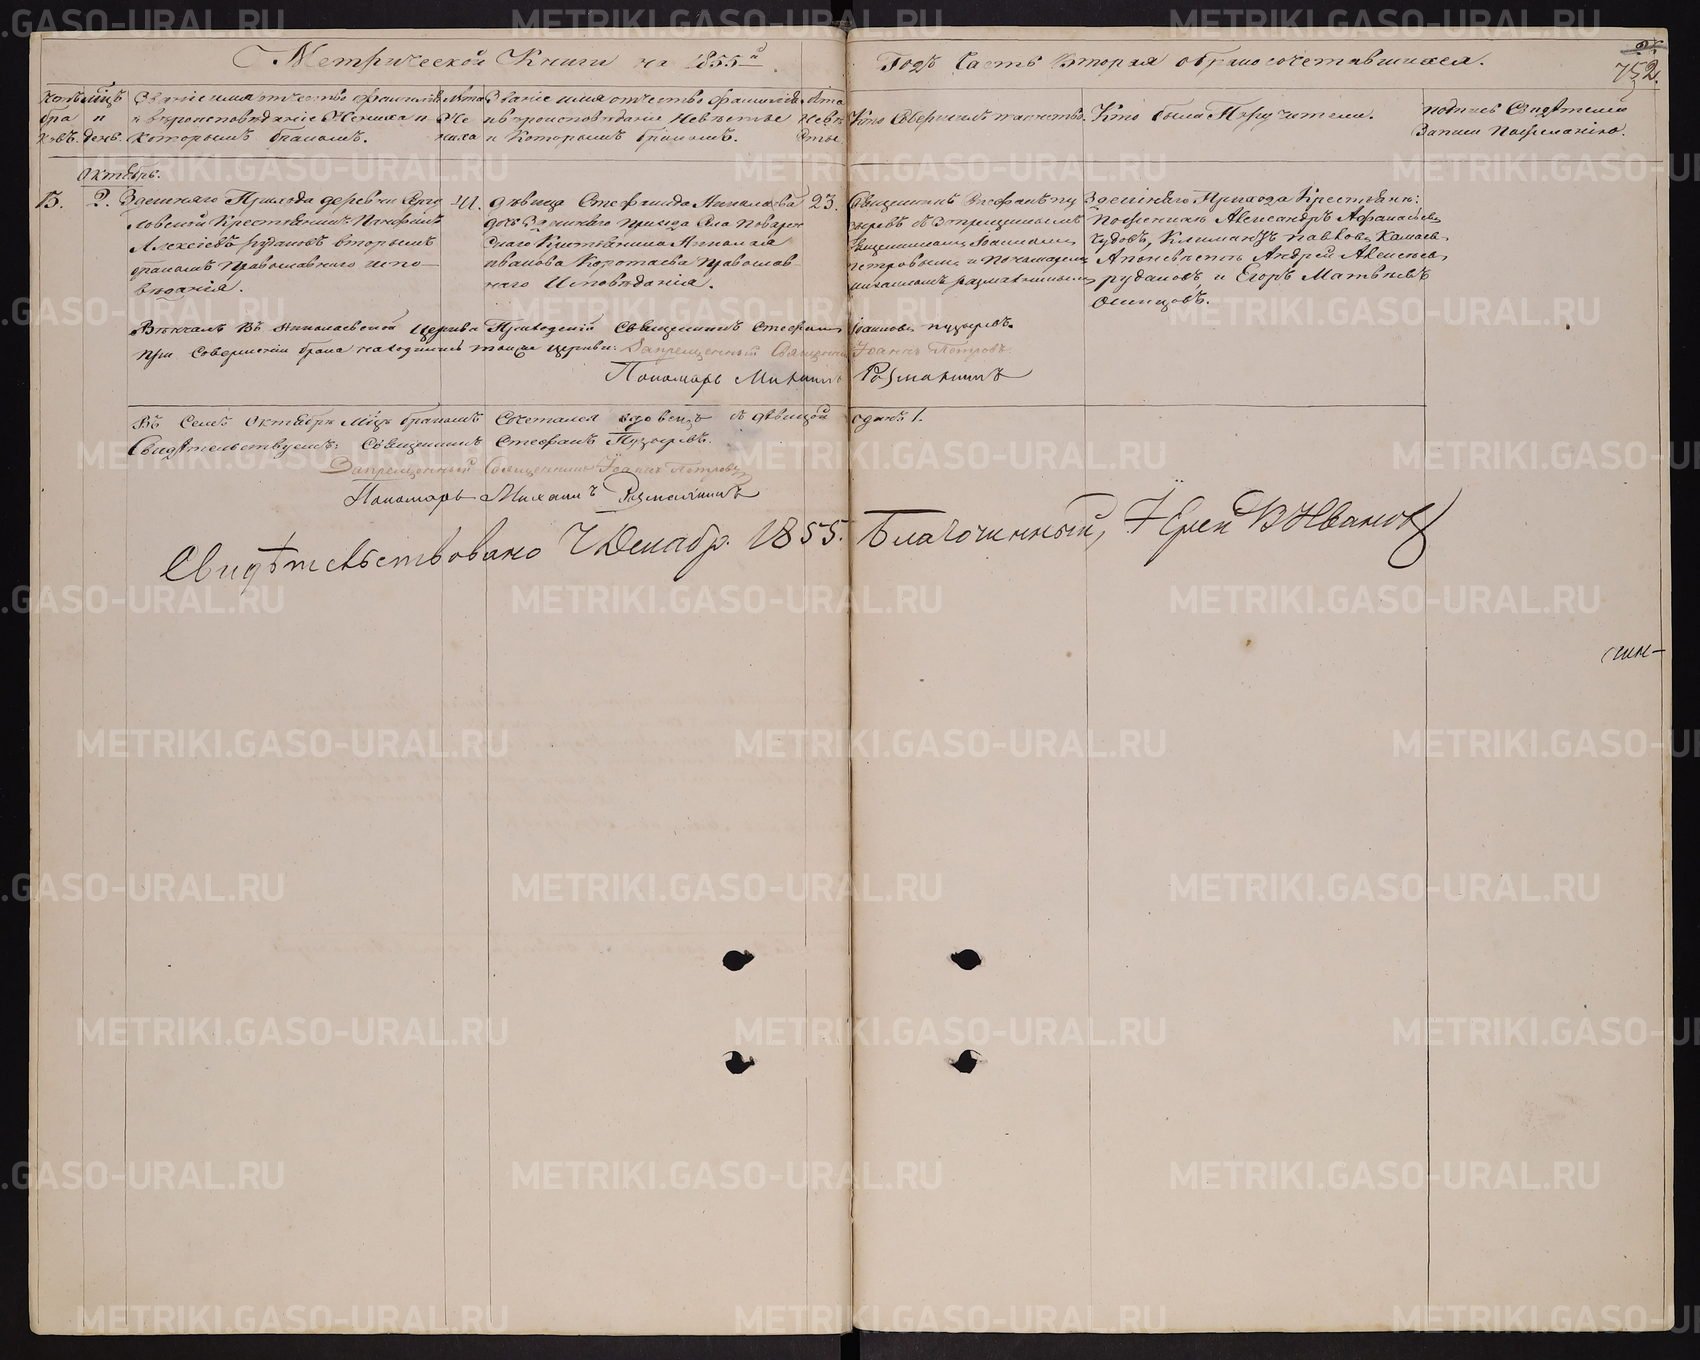 Метрической Книги на 1855й Годъ Часть Вторая о бракосочетавшихся.
752.
Мцъ и день.
Званіе имя отчество фамилія и вѣроисповѣданіе Жениха и которымъ бракомъ.
Лѣта Жениха
Званіе имя отчество фамилія и вѣроисповѣданіе Невѣсты и Которымъ бракомъ.
Лѣта Невѣсты
Кто Совершилъ таинство.
Кто были Поручители.
подпись Свидѣтелей Записи по желанію.
Октябрь.
13.
2.
Здешняго Прихода деревни
Крестьянинъ
Алексѣевъ Рудаковъ вторымъ
бракомъ православнаго испо-
вѣданія.
41.
дѣвица Стефанида Николаева
дочь Здешняго прихода Села
Крестьянина Николая
Иванова Коротаева православ-
наго Исповѣданія.
23.
Священникъ Стефанъ Пу
зыревъ съ Запрещеннымъ
Священникомъ Іоанномъ
Петровымъ и Пономаремъ
Михаиломъ Размахнинымъ
Здешняго Прихода Крестьяне:
по женихѣ Александръ Афанасьевъ
Чудовъ, Климантъ Павловъ
А по невѣстѣ Андрей Алексѣевъ
Рудаковъ, и Егоръ Матвѣевъ
Вѣнчалъ въ Николаевской церкви Приходскій Священникъ Стефанъ Іоанновъ Пузыревъ.
При совершеніи брака находились тоя же церкви: Запрещенный Священникъ Іоаннъ Петровъ.
Пономарь Михаилъ Размахнинъ
Въ Семъ Октябрѣ Мцѣ бракомъ Сочетался вдовецъ съ дѣвицой одинъ 1.
Свидѣтельствуемъ: Священникъ Стефанъ Пузыревъ.
Запрещенный Священникъ Іоаннъ Петровъ
Пономарь Михаилъ Размахнинъ
Свидѣтельствовано 7 Декабр. 1855. Благочинный, Іерей В Ивановъ
METRIKI.GASO-URAL.RU